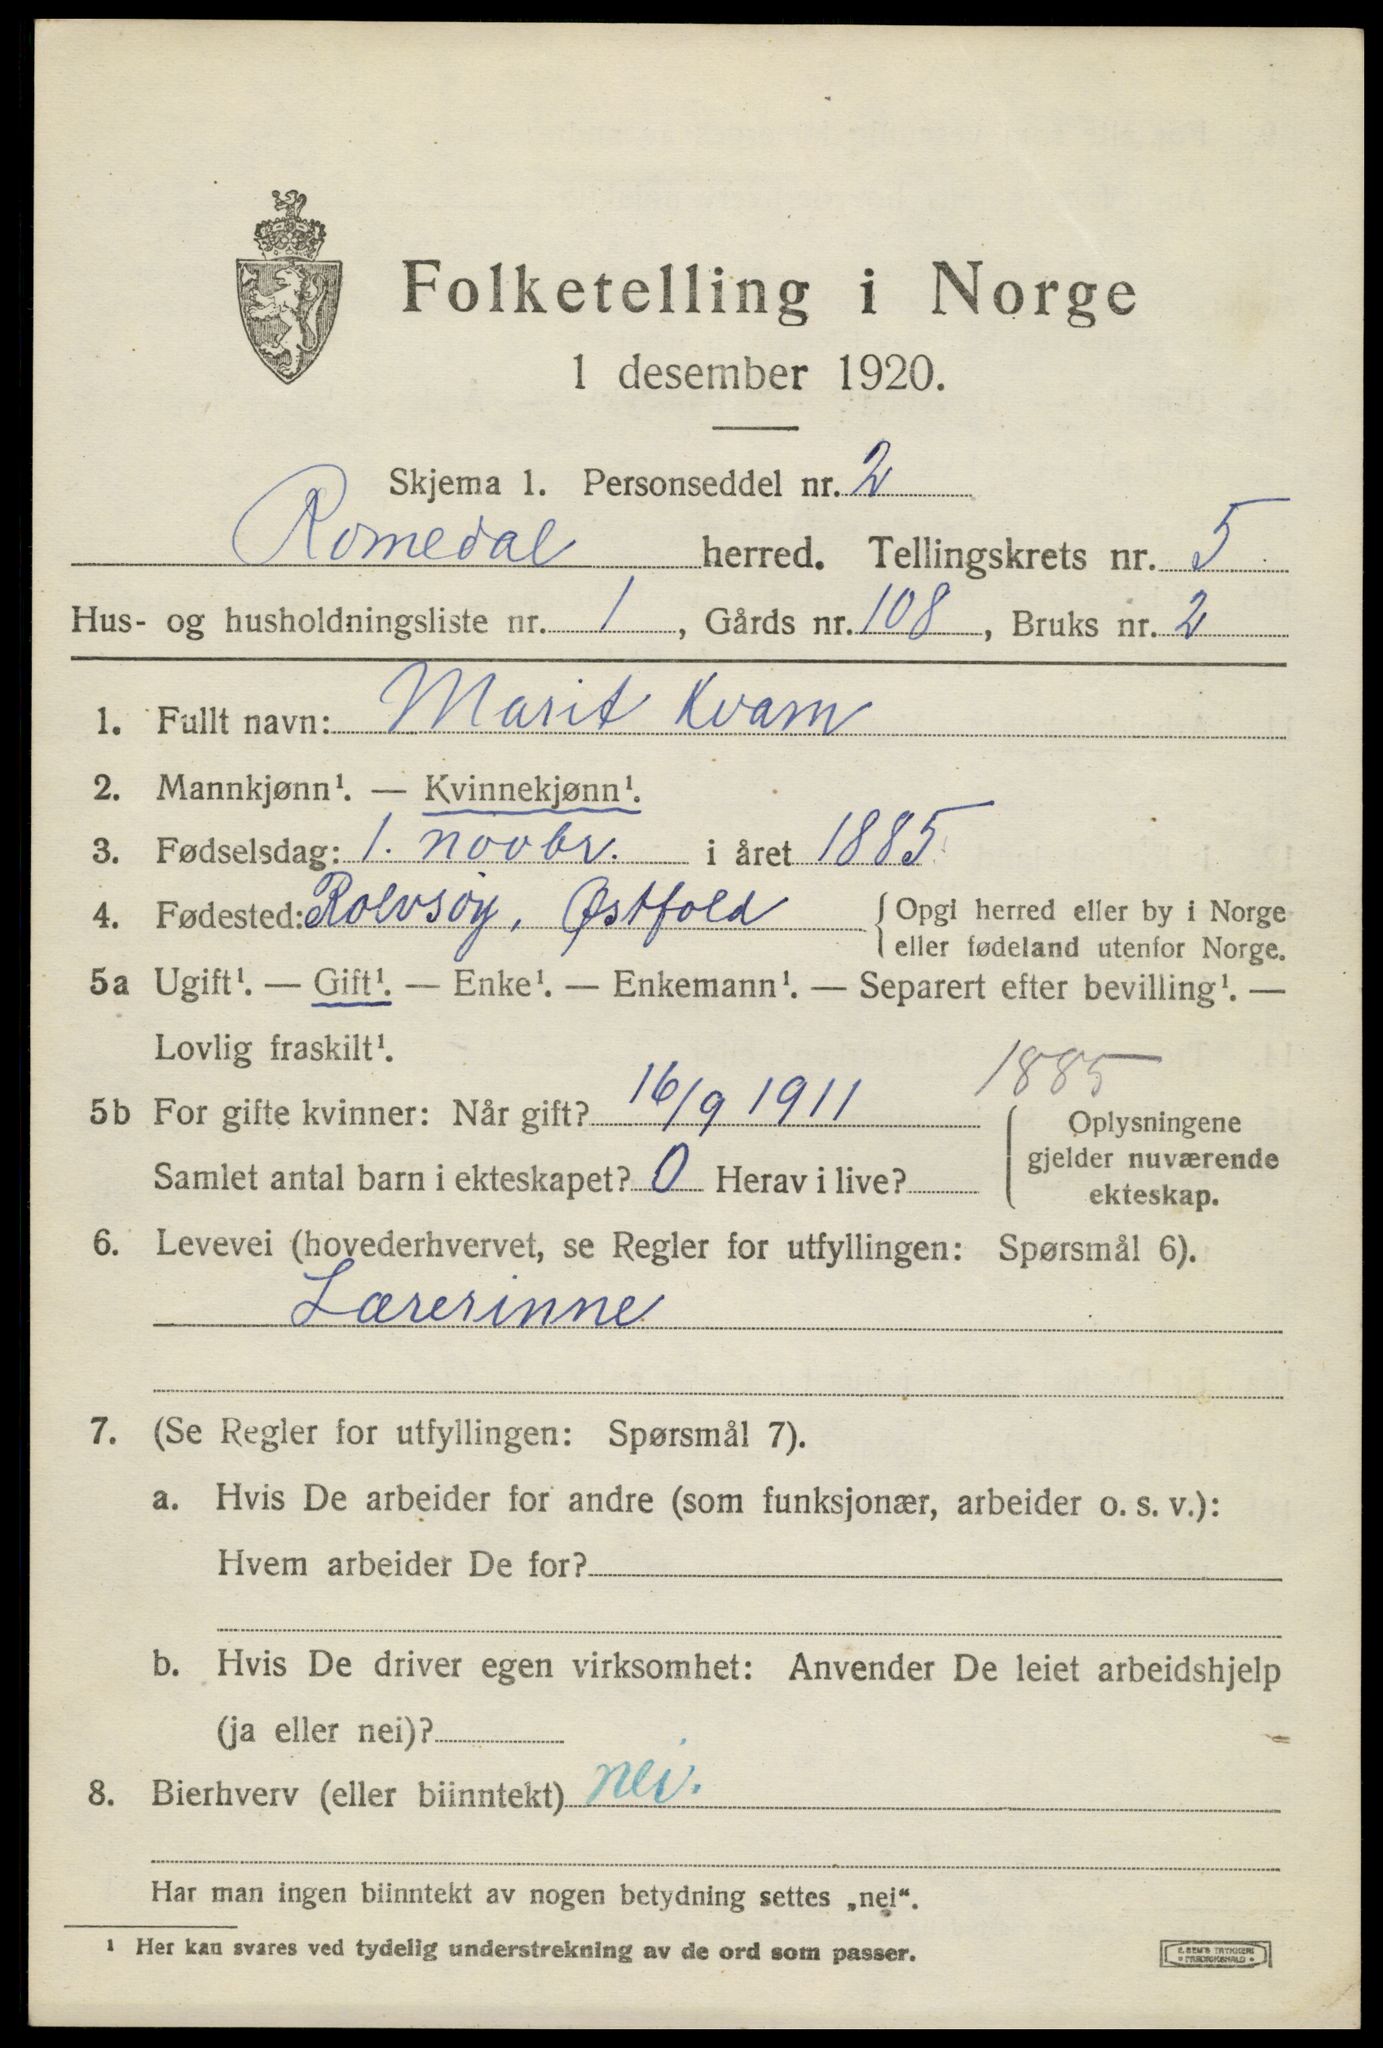 Folketelling i Norge
1 desember 1920.
Skjema 1. Personseddel nr. 2
Romedal herred. Tellingskrets nr. 5
Hus- og husholdningsliste nr. 1, Gårds nr. 108, Bruks nr. 2
1. Fullt navn: Marit Kvam
2. Mannkjønn¹. — Kvinnekjønn¹.
3. Fødselsdag: 1. novbr. i året 1885
4. Fødested: Rolvsøy, Østfold {Opgi herred eller by i Norge
eller fødeland utenfor Norge.
5a Ugift¹. — Gift¹. — Enke¹. — Enkemann¹. — Separert efter bevilling¹. —
Lovlig fraskilt¹.
1885
5b For gifte kvinner: Når gift? 16/9 1911
Samlet antal barn i ekteskapet? 0 Herav i live?
Oplysningene
gjelder nuværende
ekteskap.
6. Levevei (hovederhvervet, se Regler for utfyllingen: Spørsmål 6).
Lærerinne
7. (Se Regler for utfyllingen: Spørsmål 7).
a. Hvis De arbeider for andre (som funksjonær, arbeider o. s. v.):
Hvem arbeider De for?
b. Hvis De driver egen virksomhet: Anvender De leiet arbeidshjelp
(ja eller nei)?
8. Bierhverv (eller biinntekt) nei.
Har man ingen biinntekt av nogen betydning settes „nei“.
¹ Her kan svares ved tydelig understrekning av de ord som passer.
E. SEM'S TRYKKERI
FREDRIKSHALD